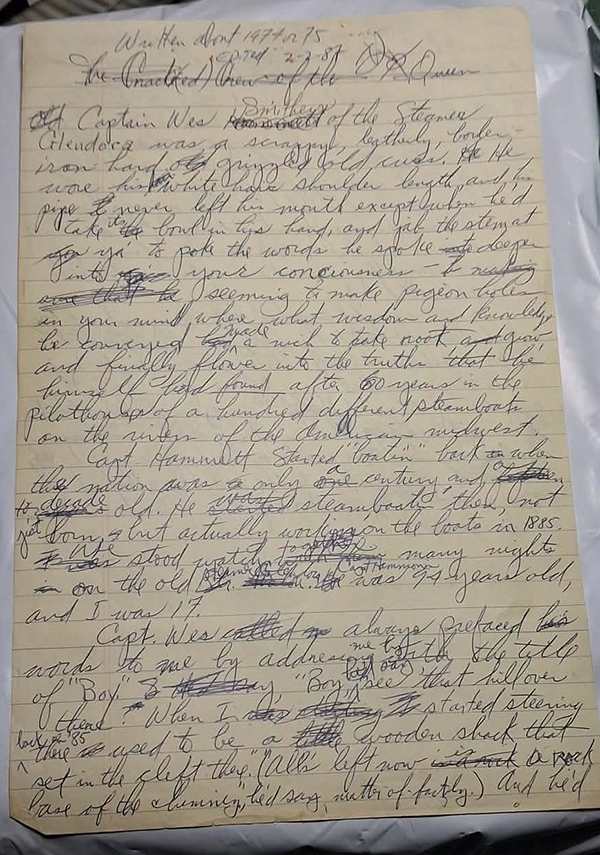 Written about 1974 or 75
copied 2-2-87
The (Cracked) Crew of the Queen
Old Captain Wes Smithers of the Steamer
Glendora was a scrappy, leatherly, boiler-
iron hard old grizzled old cuss. He
wore his white hair shoulder length, and his
pipe never left his mouth except when he'd
take its bowl in his hand, and jab the stem at
ya' to poke the words he spoke deeper
into your conciousness
seeming to make pigeon holes
in your mind where what wisdom and knowledge
he conveyed made a nich to take root grow
and finally flower into the truths that he
himself had found after 60 years in the
pilothouses of a hundred different steamboats
on the rivers of the American midwest.
Capt. Hammett Started "boatin" back when
the nation was only a century and a
decade old. He wasn't steamboatin' then, not
just born, but actually working on the boats in 1885.
We stood watch together many nights
on the old He was 94 years old,
and I was 17.
Capt. Wes always prefaced his
words to me by addressing me with the title
of "Boy" "Boy, see that hill over
there? When I started steering
back in '85
there used to be a wooden shack that
set in the cleft there." (All's left now a rock
base of the chimney," he'd say, matter-of-factly.) And he'd